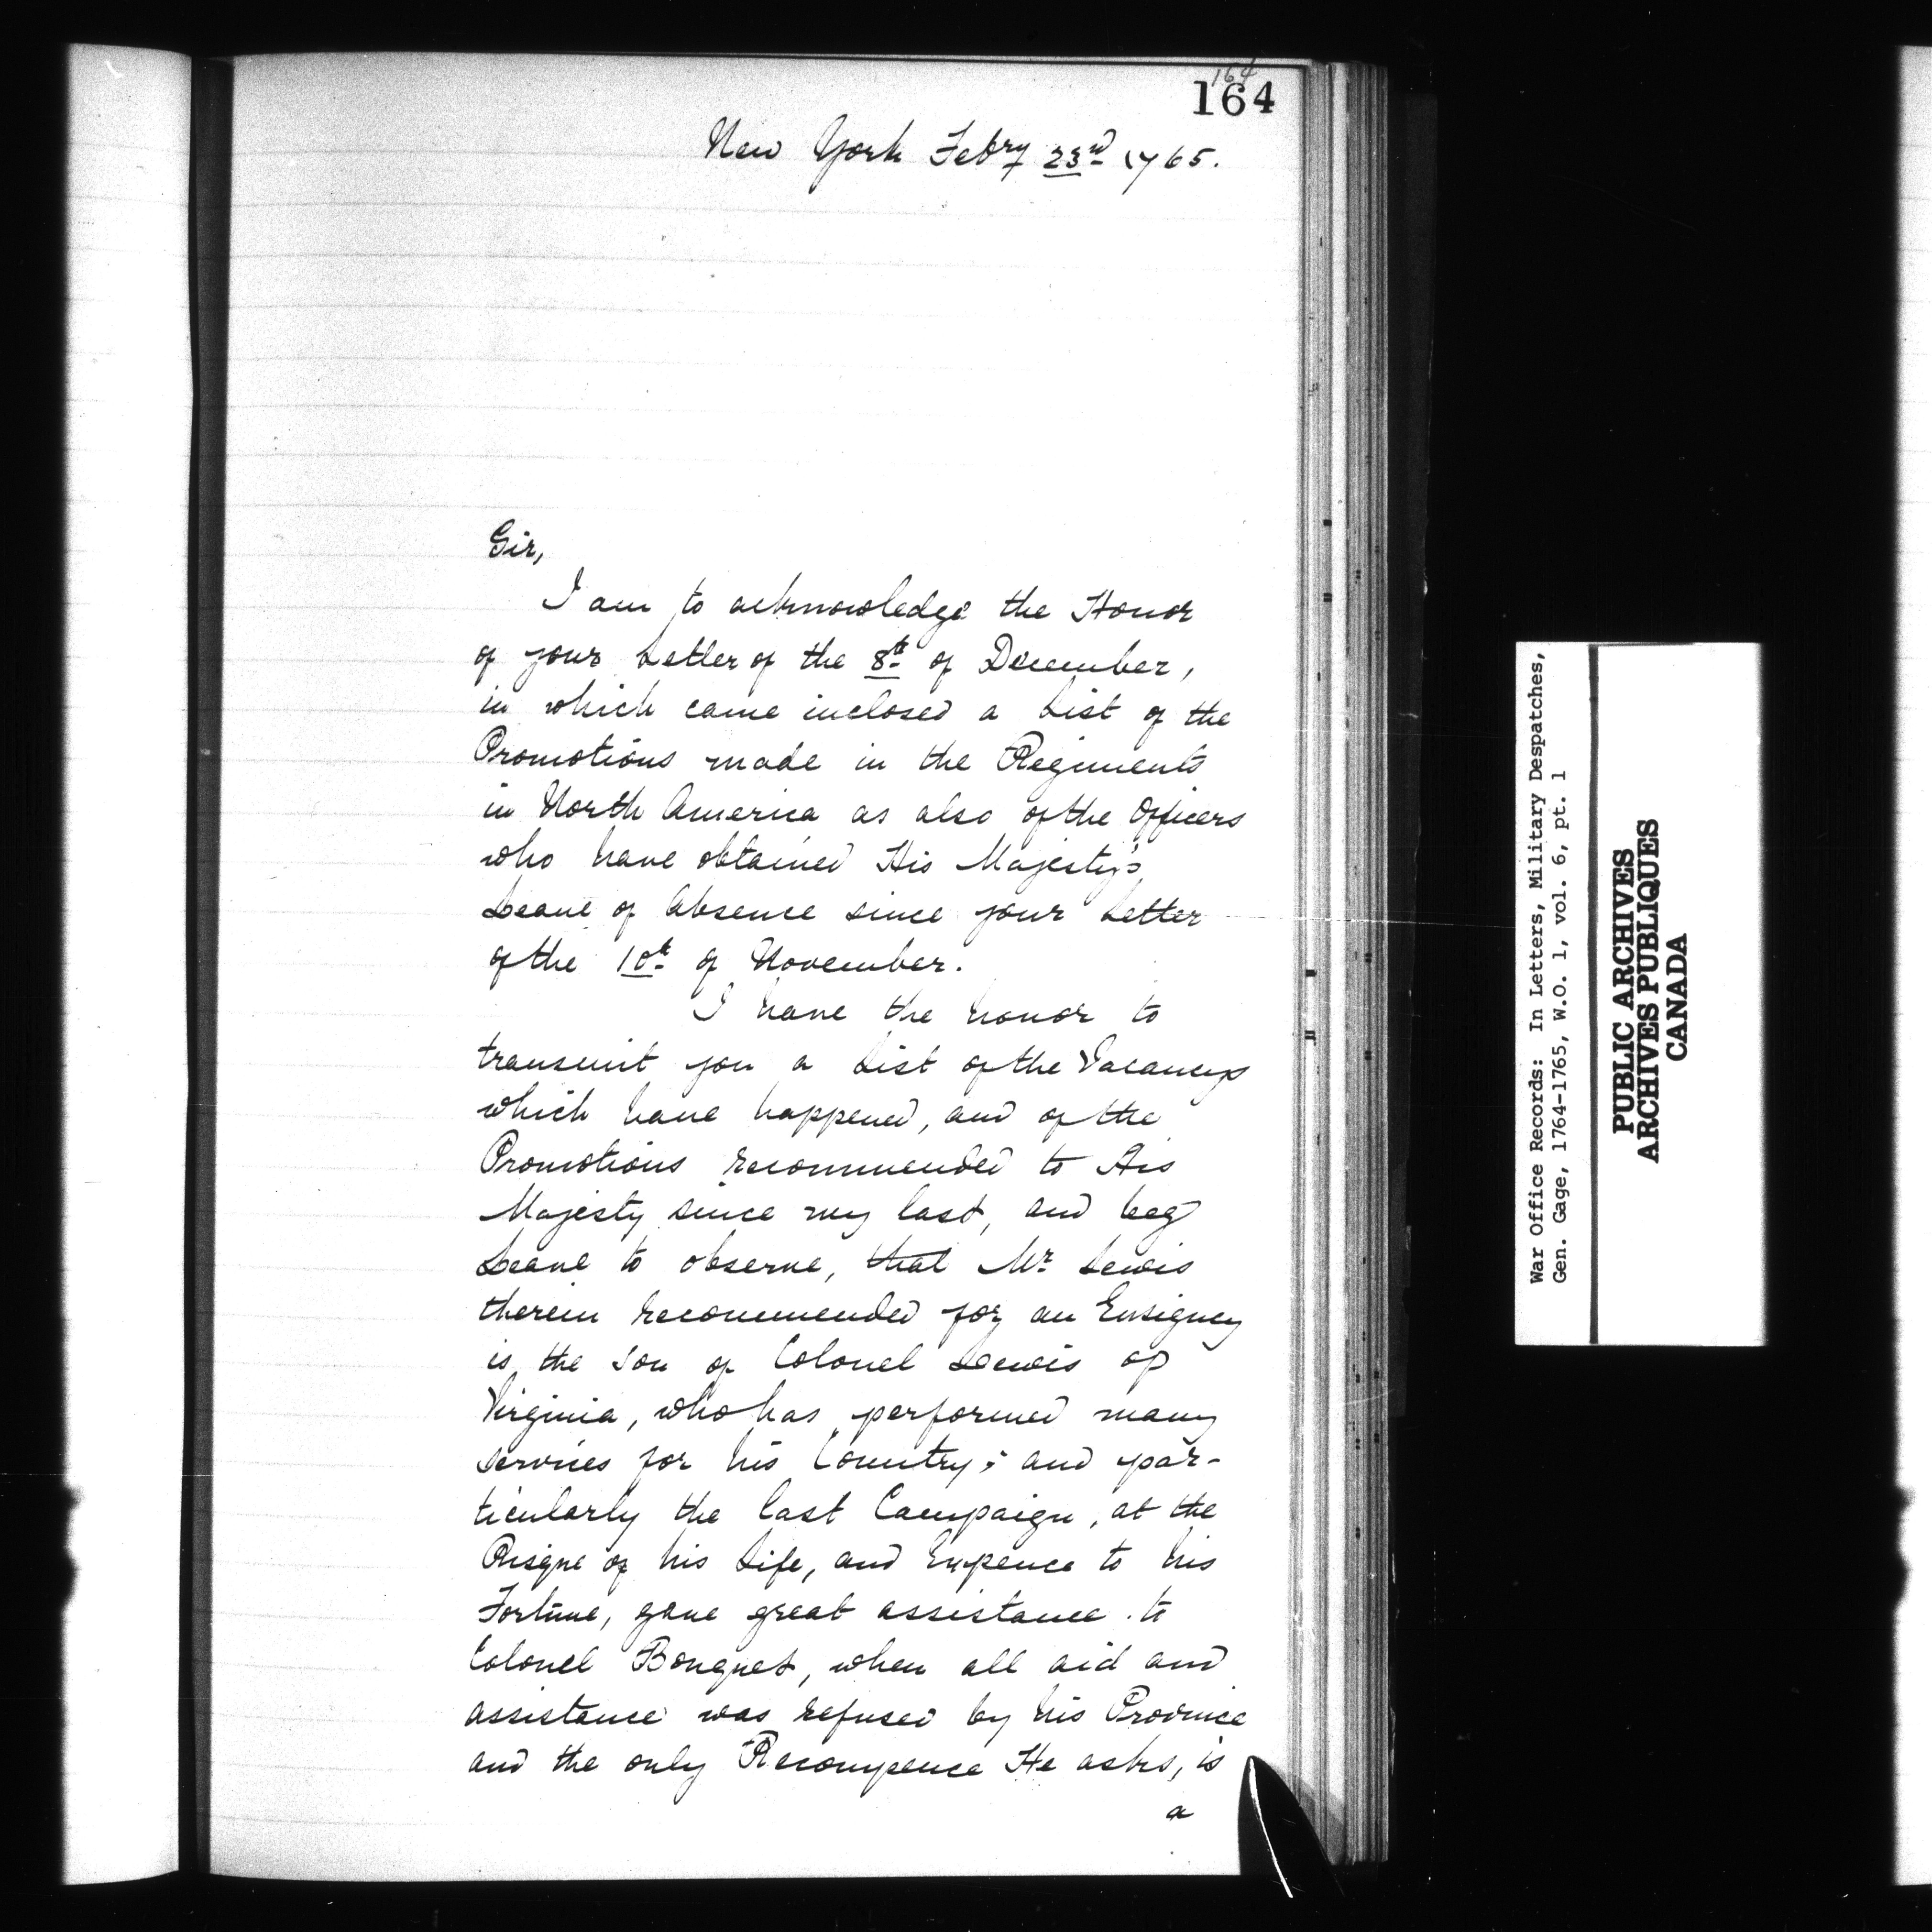 164
164
New York Febry 23rd 1765.
Sir,
I am to acknowledge the Honor
of your Letter of the 8th of December,
in which came inclosed a List of the
Promotions made in the Regiments
in North America as also of the Officers
who have obtained His Majesty's
Leave of Absence since your Letter
of the 10th of November.
I have the honor to
transmit you a List of the Vacancys
which have happened, and of the
Promotions recommended to His
Majesty since my last, and beg
Leave to observe, that Mr Lewis
therein recommended for an Ensigncy
is the Son of Colonel Lewis of
Virginia, who has performed many
services for his Country; and par-
ticularly the last Campaign, at the
Risque of his Life, and Expence to his
Fortune, gave great assistance to
Colonel Bouquet, when all aid and
assistance was refused by his Province
and the only Recompence He asks, is
a
War Office Records: In Letters, Military Despatches,
Gen. Gage, 1764-1765, W.O. 1, vol. 6, pt. 1
PUBLIC ARCHIVES
ARCHIVES PUBLIQUES
CANADA